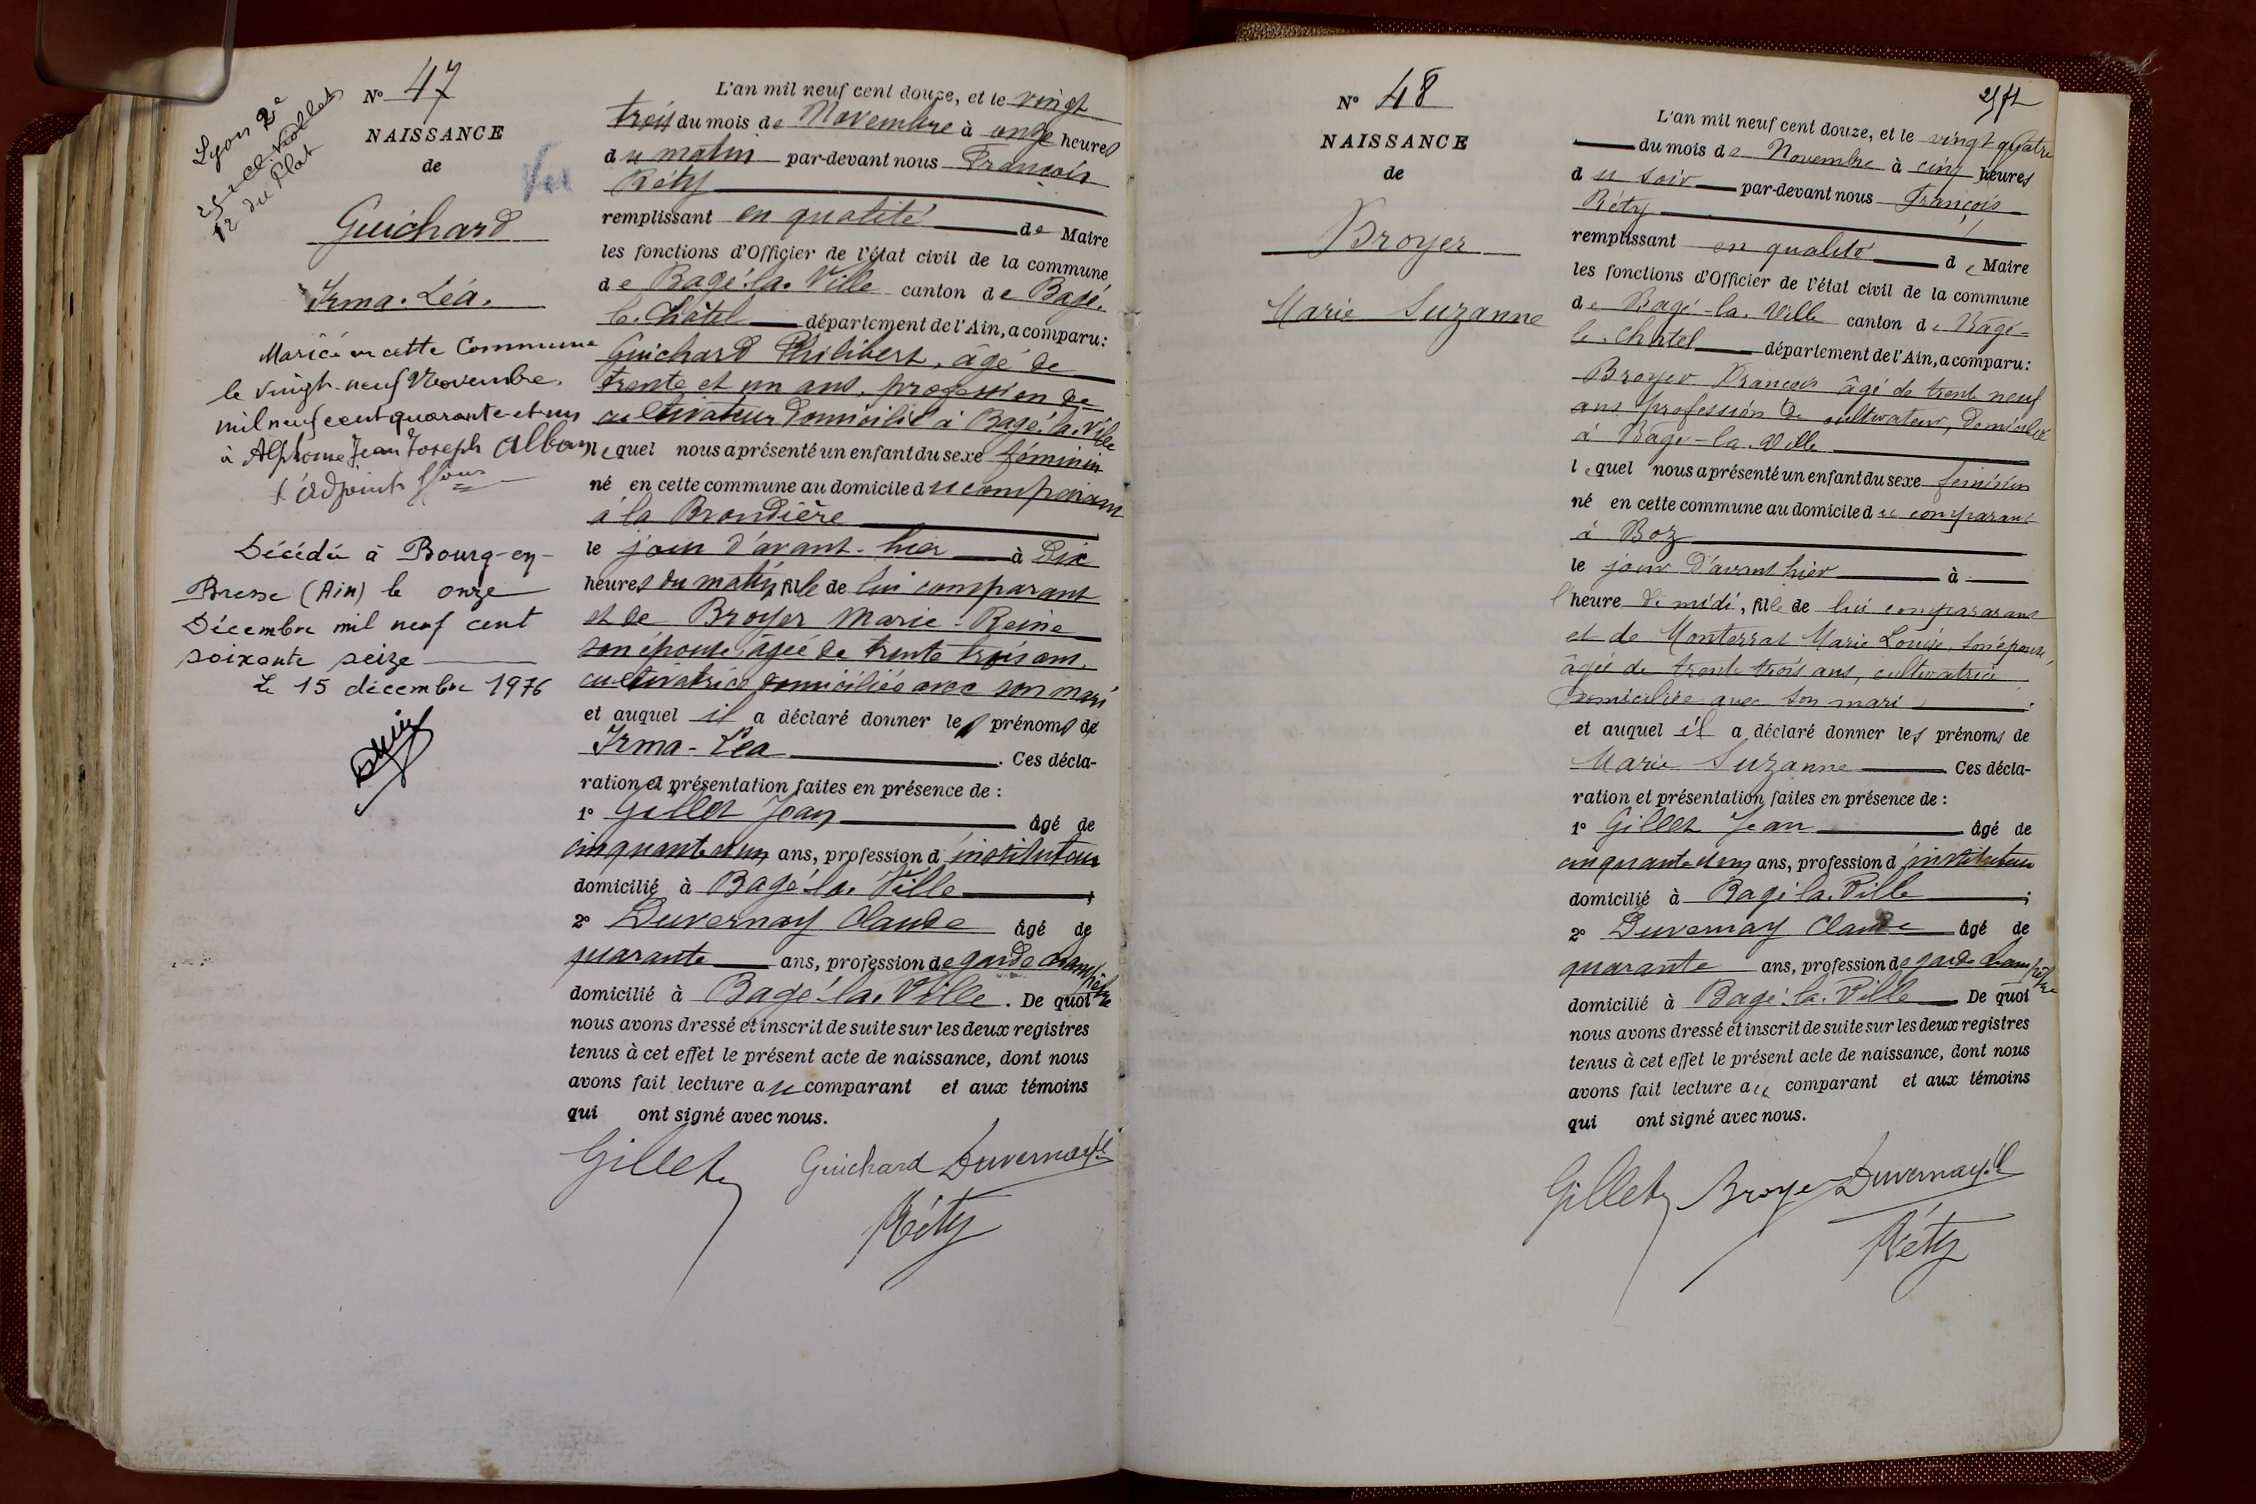 Lyon 2e
12 du Plat
N° 47
NAISSANCE
de
Guichard
Irma. Léa.
Mariée en cette Commune
le vingt-neuf Novembre
mil neuf cent quarante et un
à Alphonse Jean Joseph Alban
L'adjoint
Décédée à Bourg-en-
Bresse (Ain) le onze
Décembre mil neuf cent
soixante seize
Le 15 décembre 1976
L'an mil neuf cent douze, et le vingt
trois du mois de Novembre à onze heures
du matin par-devant nous François
Réty
remplissant en qualité de Maire
les fonctions d'Officier de l'état civil de la commune
de Bagé-la-Ville canton de Bagé-
le-Châtel département de l'Ain, a comparu :
Guichard Philibert, âgé de
trente et un ans, profession de
cultivateur domicilié à Bagé-la-Ville
lequel nous a présenté un enfant du sexe féminin
né en cette commune au domicile du comparant
à la Brondière
le jour d'avant-hier à Dix
heures du matin, fille de lui comparant
et de Broyer Marie-Reine
son épouse, âgée de trente trois ans,
cultivatrice domiciliée avec son mari
et auquel il a déclaré donner les prénoms de
Irma-Léa . Ces décla-
ration et présentation faites en présence de :
1° Gillet Jean âgé de
cinquante et un ans, profession d'instituteur
domicilié à Bagé-la-Ville ;
2° Duvernay Claude âgé de
quarante ans, profession de garde champêtre
domicilié à Bagé-la-Ville . De quoi
nous avons dressé et inscrit de suite sur les deux registres
tenus à cet effet le présent acte de naissance, dont nous
avons fait lecture au comparant et aux témoins
qui ont signé avec nous.
Gillet Guichard Duvernay Cl
Réty
N° 48
NAISSANCE
de
Broyer
Marie Suzanne
L'an mil neuf cent douze, et le vingt quatre
du mois de Novembre à cinq heures
du soir par-devant nous François
Réty
remplissant en qualité de Maire
les fonctions d'Officier de l'état civil de la commune
de Bagé-la-Ville canton de Bagé-
le-Chatel département de l'Ain, a comparu :
Broyer Francois âgé de trente neuf
ans profession de cultivateur, domicilié
à Bagé-la-Ville
lequel nous a présenté un enfant du sexe féminin
né en cette commune au domicile du comparant
à Boz
le jour d'avant hier à
l'heure de midi, fille de lui comparant
et de Monterrat Marie Louise, son épouse,
âgée de trente trois ans, cultivatrice
domiciliée avec son mari
et auquel il a déclaré donner les prénoms de
Marie Suzanne Ces décla-
ration et présentation faites en présence de :
1° Gillet Jean âgé de
cinquante et un ans, profession d'instituteur
domicilié à Bagé-la-Ville ;
2° Duvernay Claude âgé de
quarante ans, profession de garde champêtre
domicilié à Bagé-la-Ville De quoi
nous avons dressé et inscrit de suite sur les deux registres
tenus à cet effet le présent acte de naissance, dont nous
avons fait lecture au comparant et aux témoins
qui ont signé avec nous.
Gillet Broyer Duvernay Cl
Réty